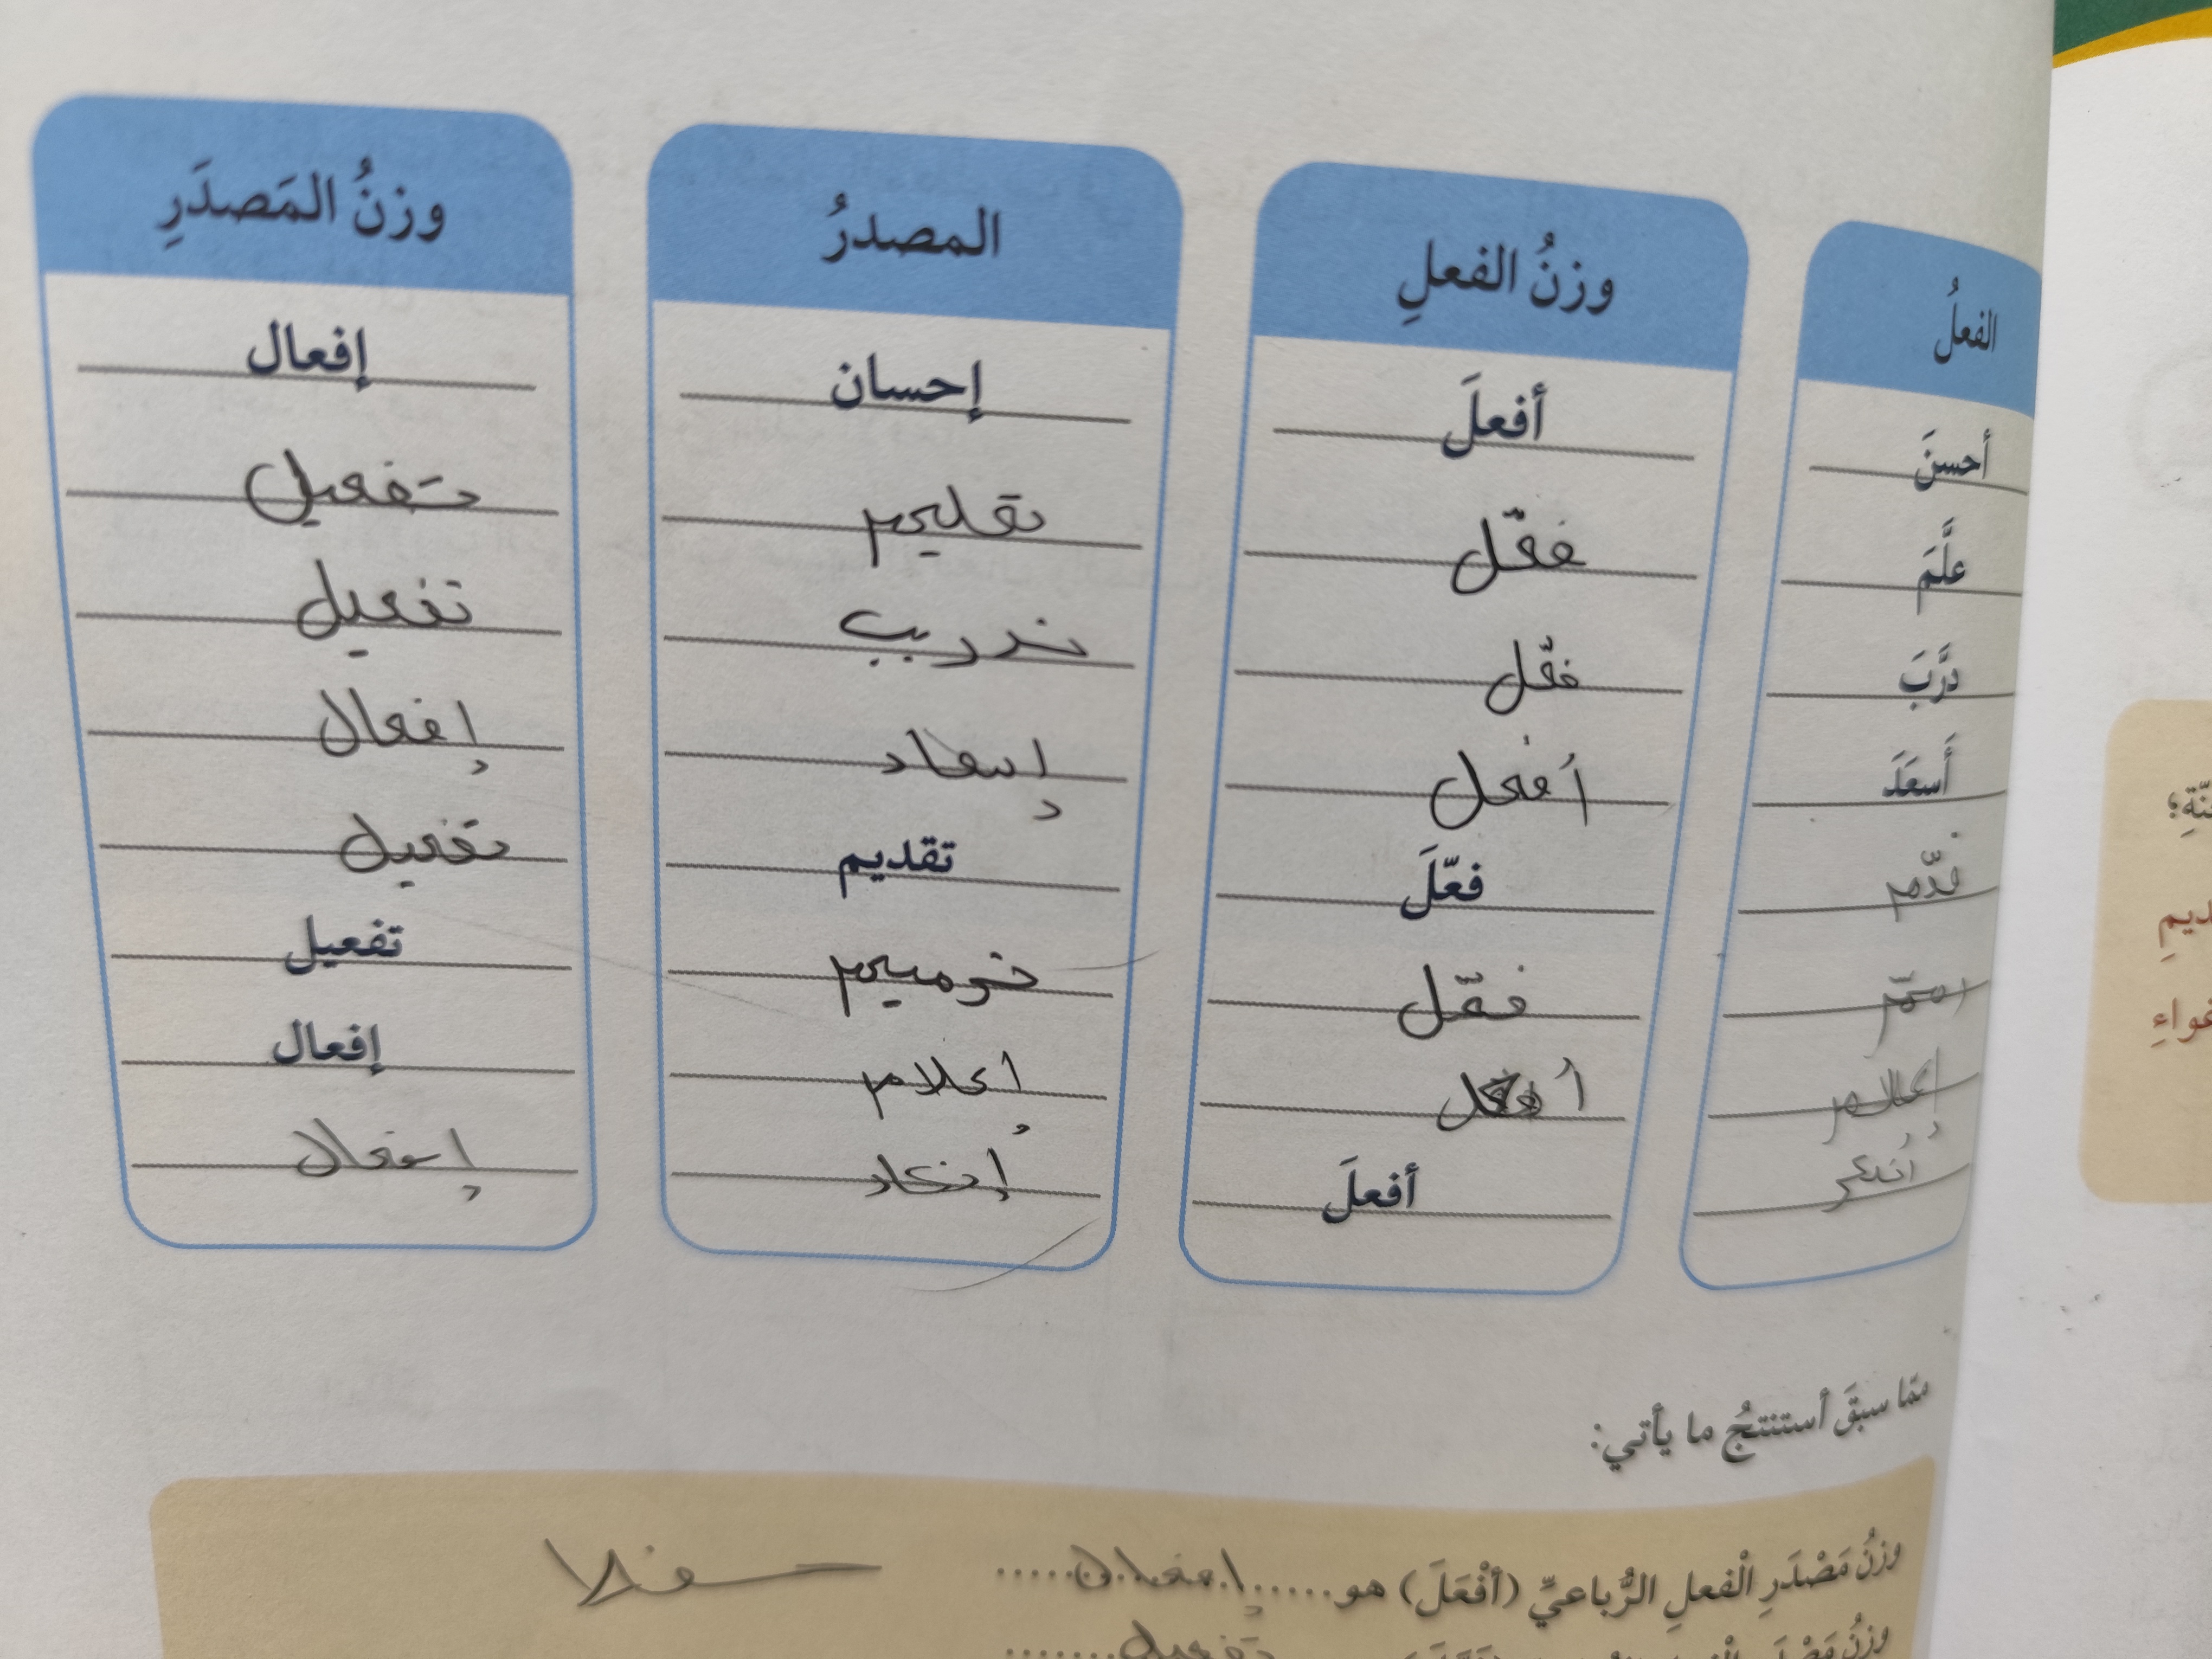 الفعلُ وزنُ الفعلِ المصدرُ وزنُ المَصدَرِ
أحسنَ أفعلَ إحسان إفعال
علَّمَ فعّل تعليم تفعيل
درَّبَ فعّل تدريب تفعيل
أَسعَدَ أفعل إسعاد إفعال
قدّم فعّلَ تقديم تفعيل
فعّل ترميم تفعيل
أفعل إعلام إفعال
أفعلَ إفعال
ممّا سبقَ أستنتجُ ما يأتي:
وزنُ مَصْدَرِ الْفعلِ الرُّباعيِّ (أَفْعَلَ) هو......إفعال.....
تفعيل